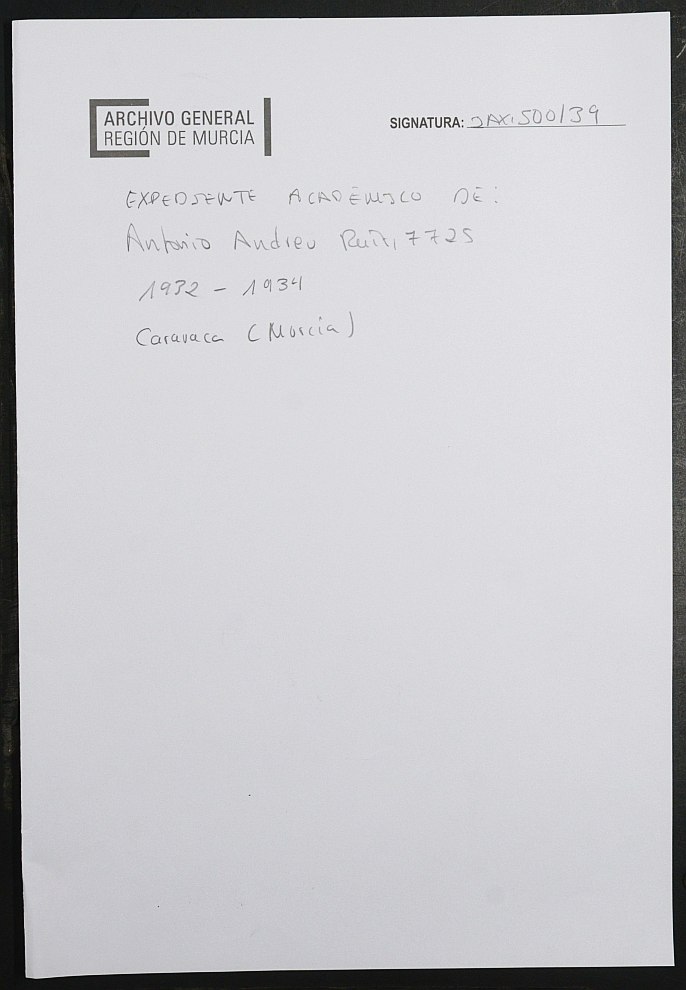 ARCHIVO GENERAL
REGIÓN DE MURCIA
SIGNATURA: JAX,500/39
EXPEDIENTE ACADÉMICO DE:
Antonio Andreu Ruiz, 7725
1932 - 1934
Caravaca (Murcia)